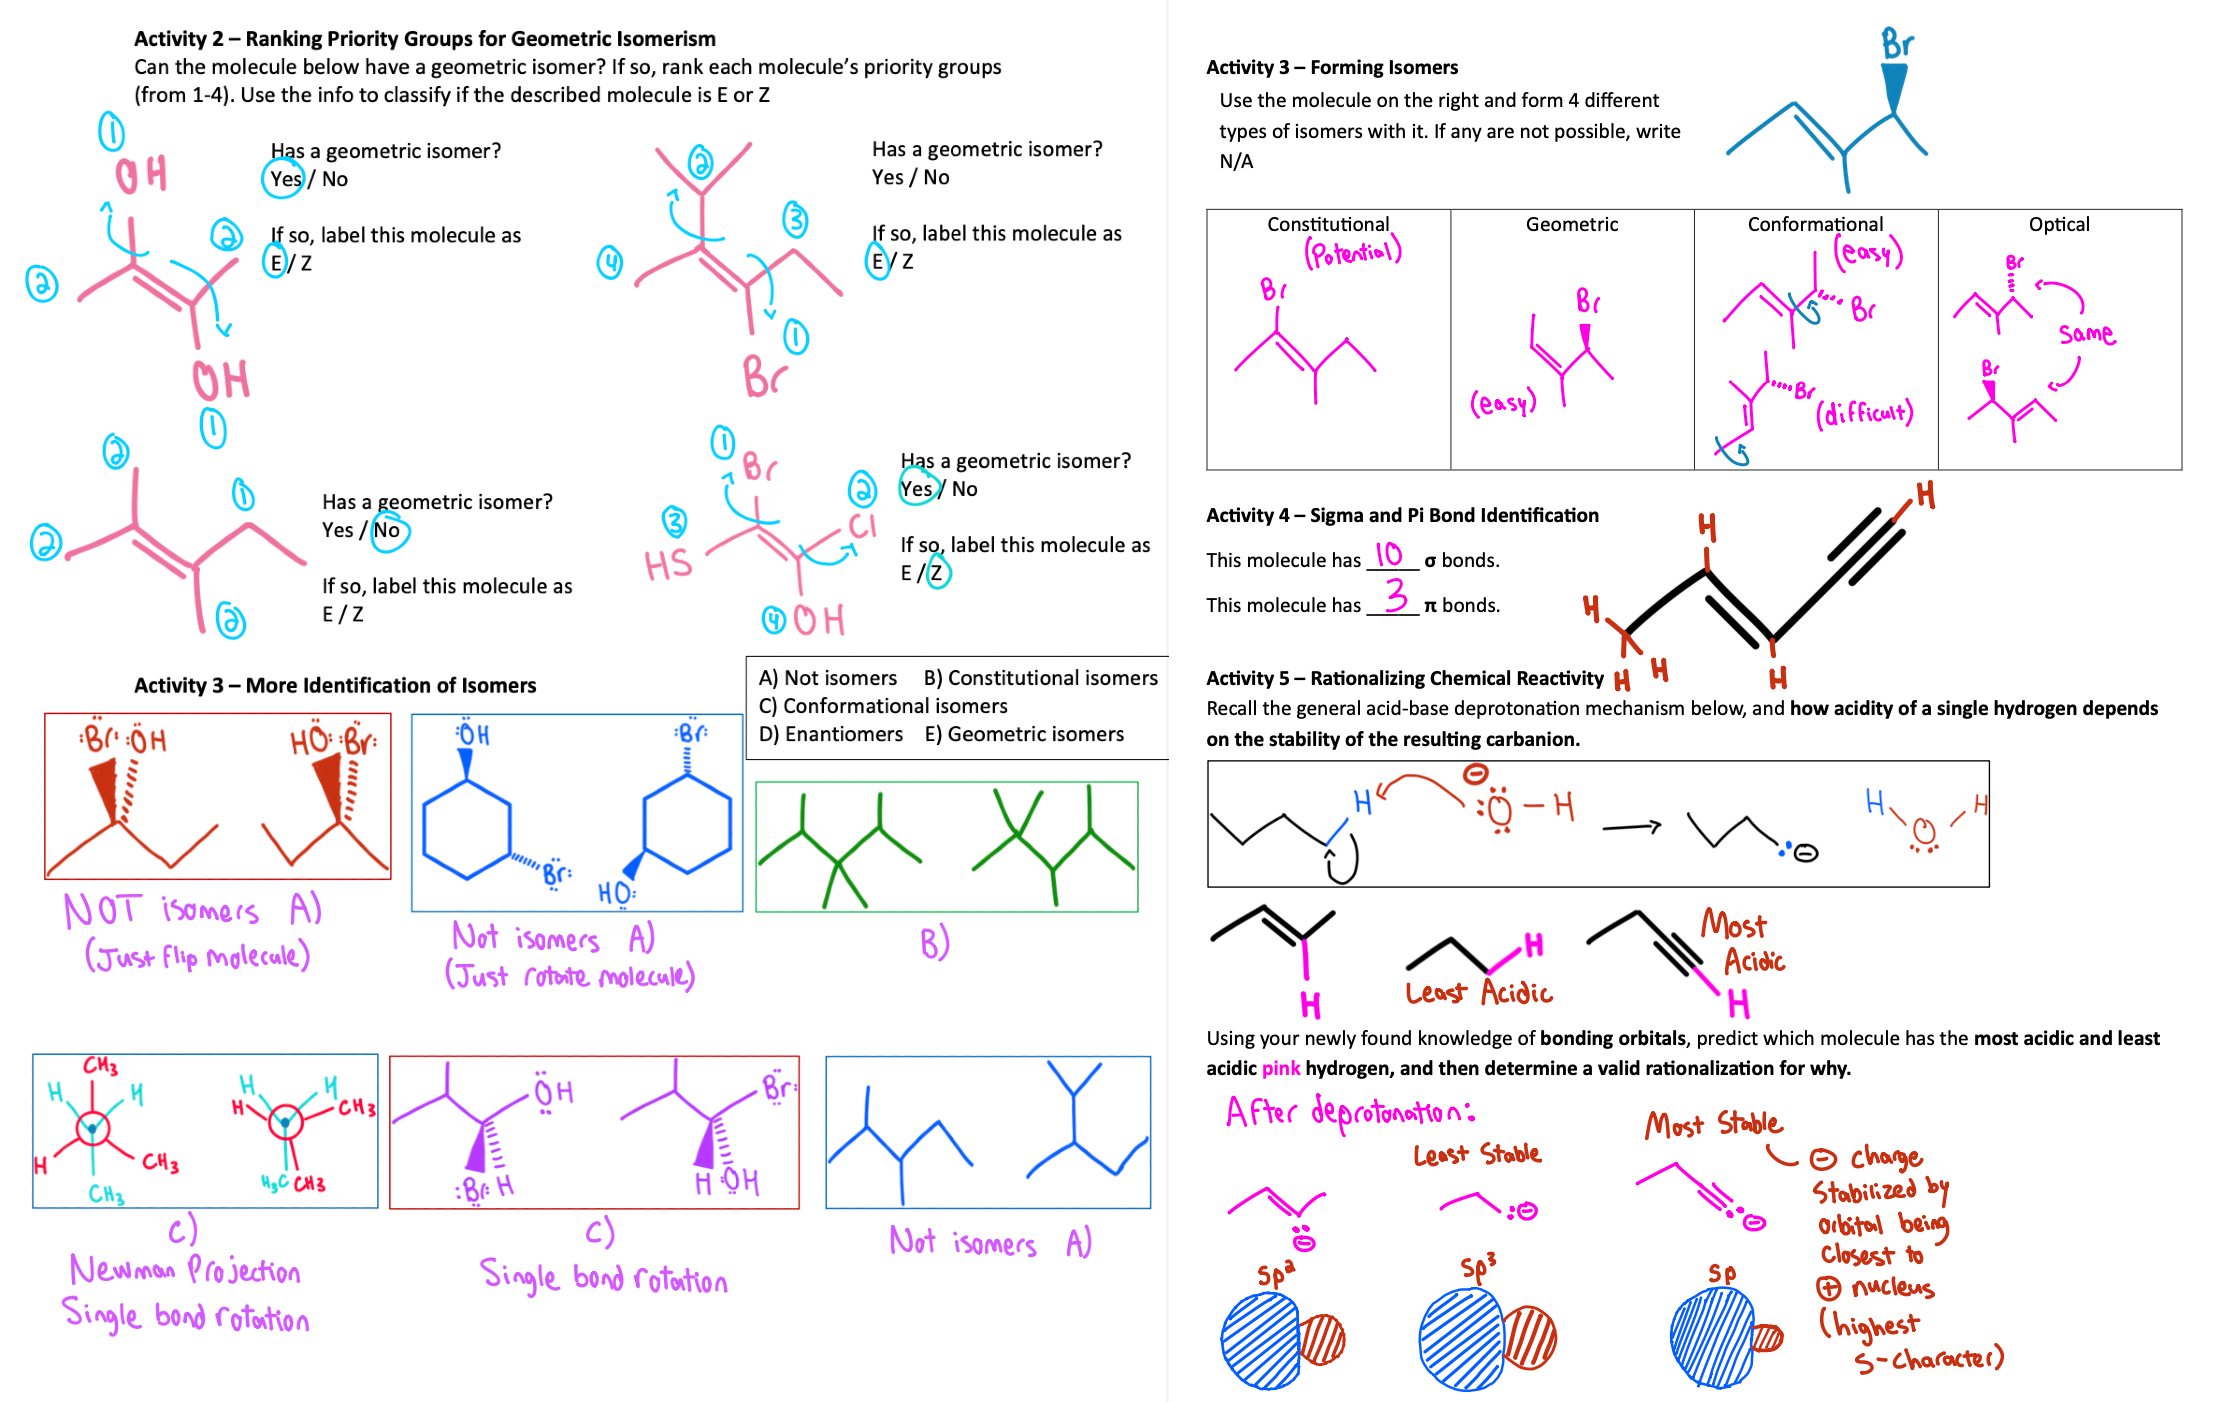 Activity 2 – Ranking Priority Groups for Geometric Isomerism
Can the molecule below have a geometric isomer? If so, rank each molecule's priority groups
(from 1-4). Use the info to classify if the described molecule is E or Z
1
OH
2
2
OH
1
Has a geometric isomer?
Yes / No
If so, label this molecule as
E / Z
2
3
4
1
Br
Has a geometric isomer?
Yes / No
If so, label this molecule as
E / Z
2
1
2
2
Has a geometric isomer?
Yes / No
If so, label this molecule as
E / Z
1
Br
2
3
Cl
HS
4
OH
Has a geometric isomer?
Yes / No
If so, label this molecule as
E / Z
Activity 3 – More Identification of Isomers
A) Not isomers B) Constitutional isomers
C) Conformational isomers
D) Enantiomers E) Geometric isomers
:Br: :OH
HO: :Br:
NOT isomers A)
(Just flip molecule)
:OH
Br:
:Br:
HO:
Not isomers A)
(Just rotate molecule)
B)
CH3
H H
H CH3
CH3
H H
H CH3
H3C CH3
C)
Newman Projection
Single bond rotation
OH
:Br: H
Br:
H :OH
C)
Single bond rotation
Not isomers A)
Activity 3 – Forming Isomers
Use the molecule on the right and form 4 different
types of isomers with it. If any are not possible, write
N/A
Br
Constitutional
(Potential)
Br
Geometric
Br
(easy)
Conformational
(easy)
Br
Br
(difficult)
Optical
Br
Same
Br
Activity 4 – Sigma and Pi Bond Identification
This molecule has 10 σ bonds.
This molecule has 3 π bonds.
H
H
H
H H
H
Activity 5 – Rationalizing Chemical Reactivity
Recall the general acid-base deprotonation mechanism below, and how acidity of a single hydrogen depends
on the stability of the resulting carbanion.
H
⊖
:O – H
:⊖
H O H
H
H
Least Acidic
Most
Acidic
H
Using your newly found knowledge of bonding orbitals, predict which molecule has the most acidic and least
acidic pink hydrogen, and then determine a valid rationalization for why.
After deprotonation:
⊖
Sp2
Least Stable
:⊖
Sp3
Most Stable
:⊖
Sp
⊖ charge
Stabilized by
orbital being
Closest to
⊕ nucleus
(highest
S-character)